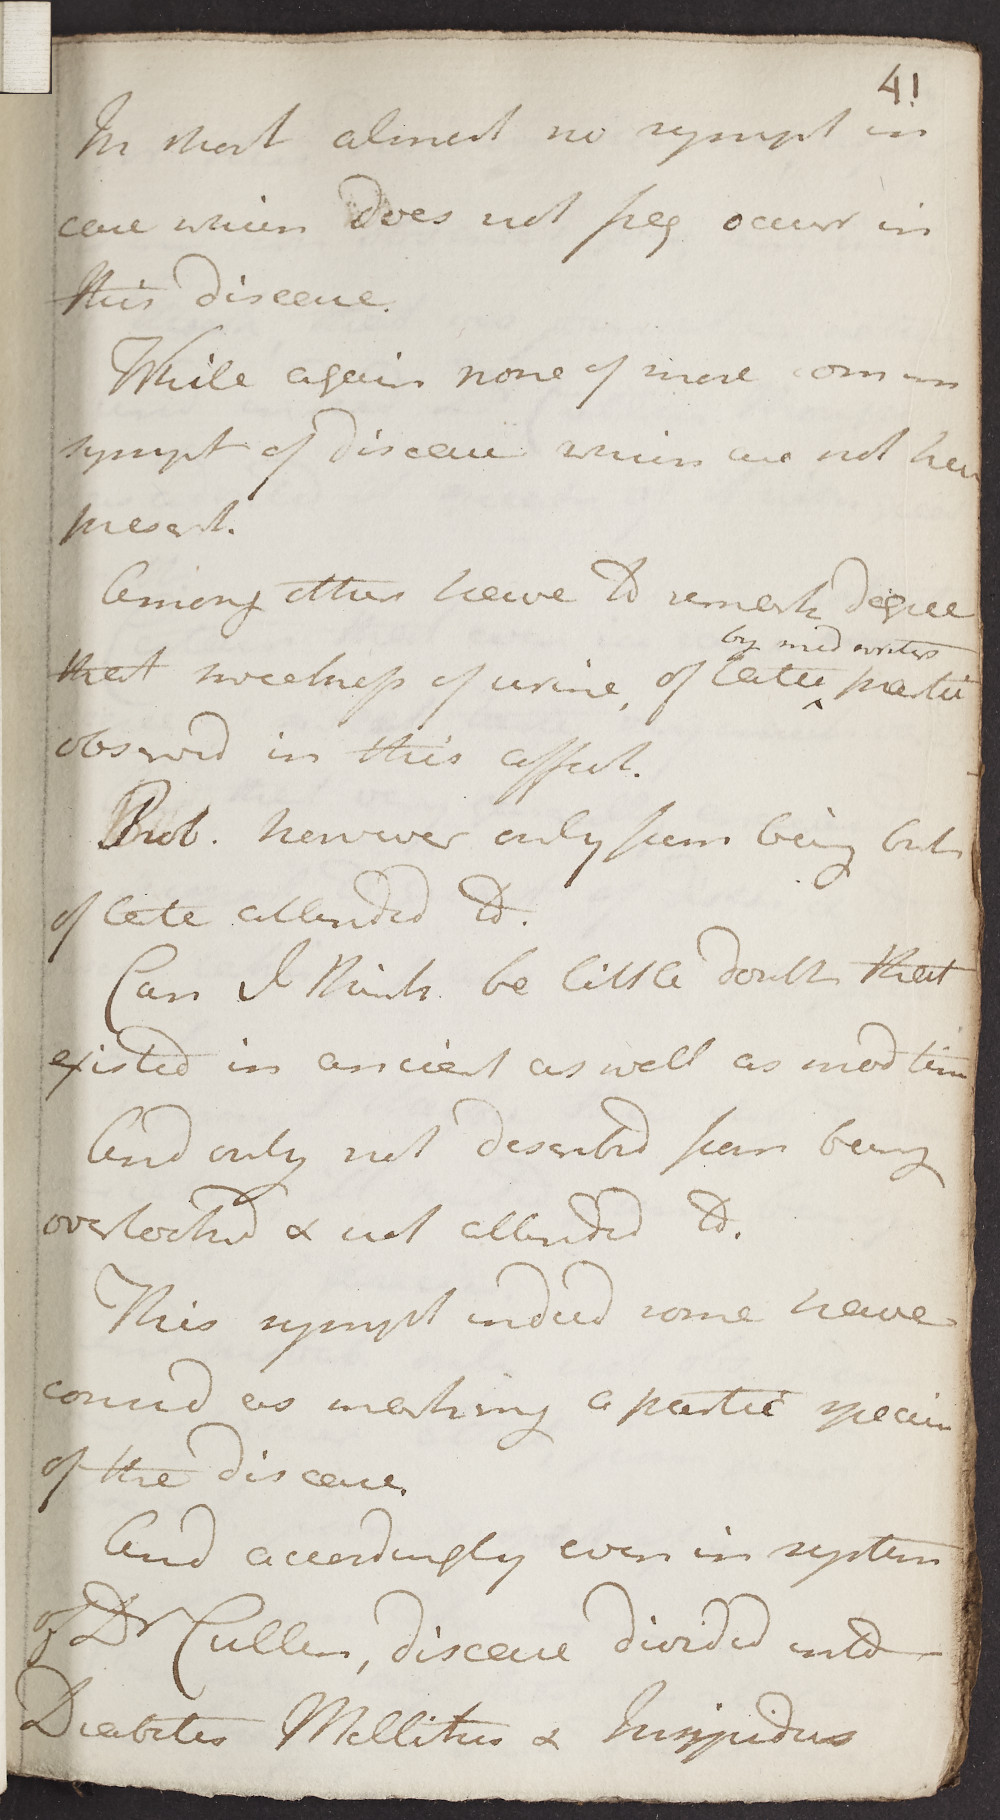 41
In short almost no sympt in
case which does not freq occur in
this disease.
While again none of more comm
sympt of disease which are not here
present.
Among others have to remark degree
by med writers
that sweetness of urine, of late ^ partic
observed in this affect.
Prob. however only from being but
of late attended to.
Can I think be little doubt that
existed in ancient as well as mod tim
And only not describd from being
overlookd & not attended to.
This sympt indeed some have
considd as marking a partic specim
of the disease.
And accordingly even in system
of Dr Cullen, disease divided into
Diabetes Mellitus & Insipidus